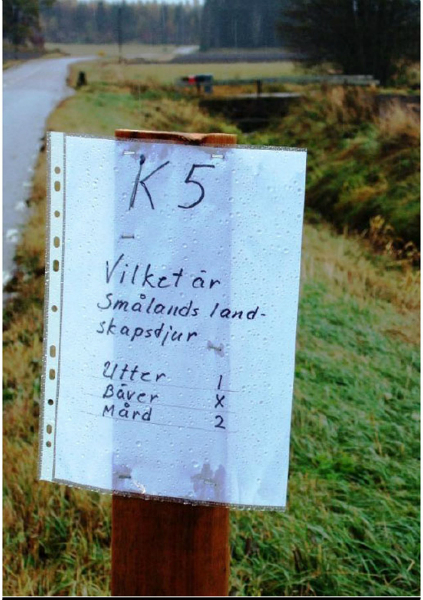 K5
Vilket är
Smålands land-
skapsdjur
Utter 1
Bäver X
Mård 2